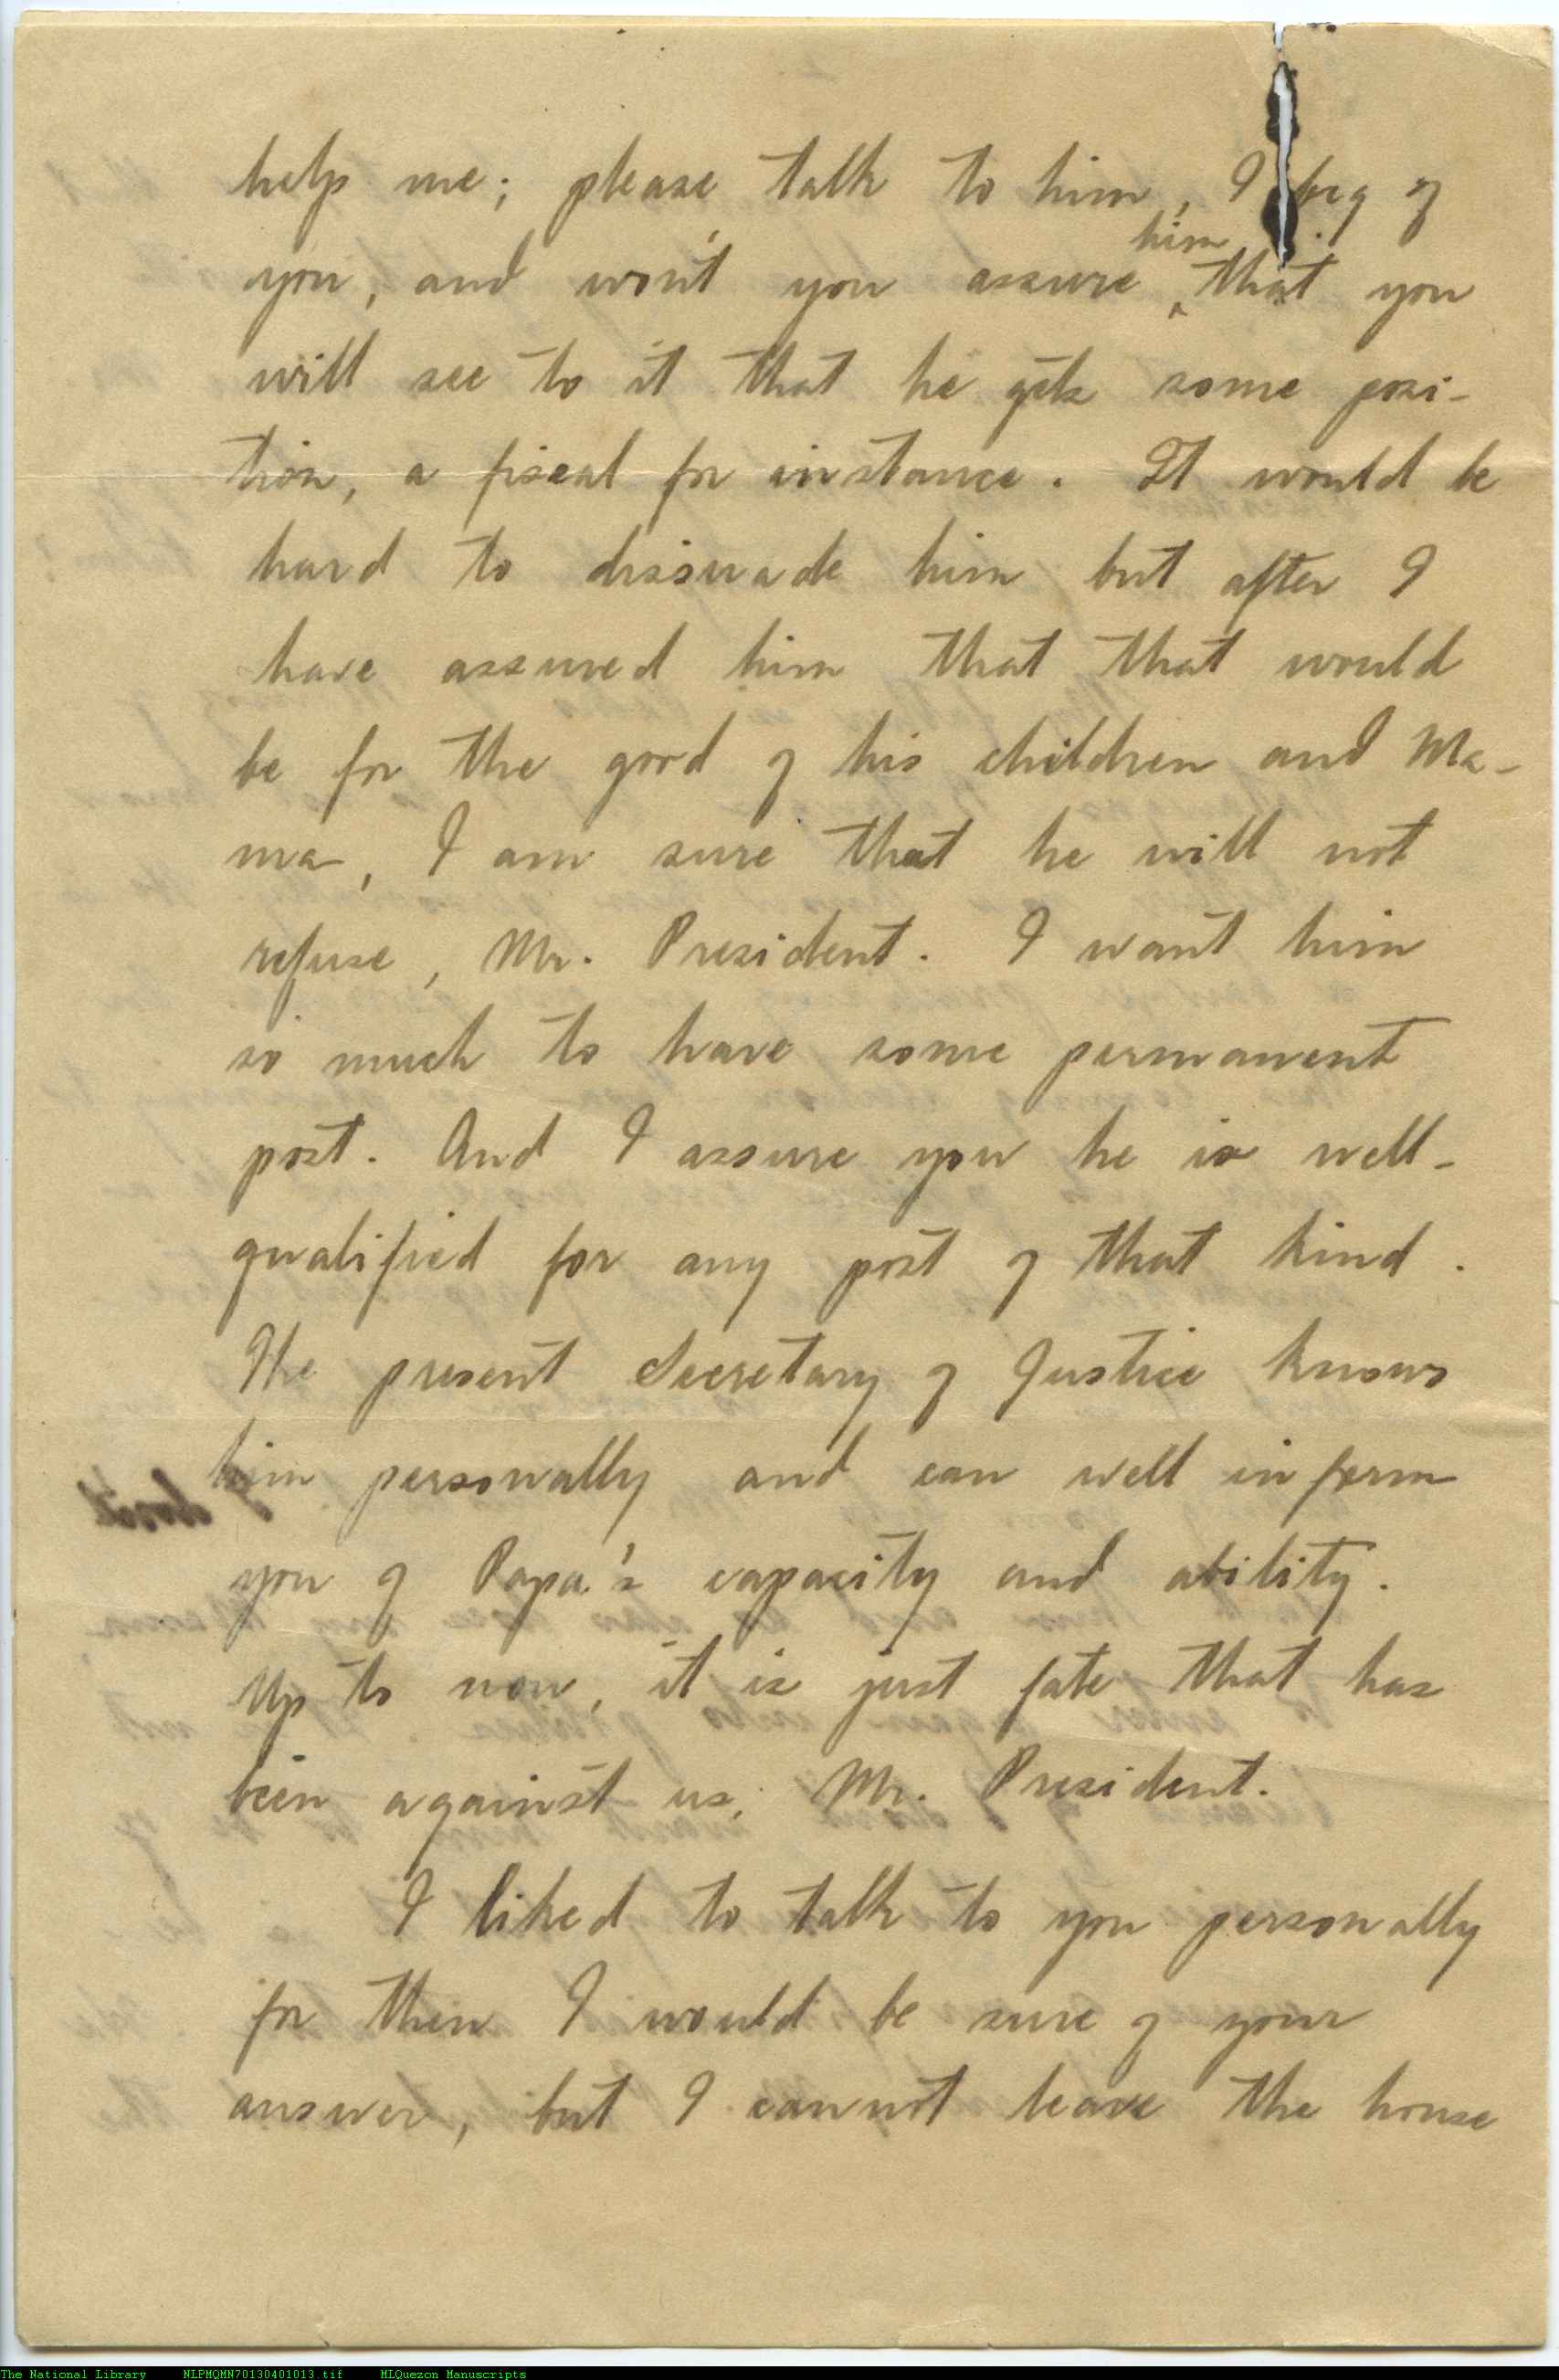 help me; please talk to him, I beg of
you, and won't you assure him that you
will see to it that he gets some posi-
tion, a fiscal for instance. It would be
hard to dissuade him but after I
have assured him that that would
be for the good of his children and Ma-
ma, I am sure that he will not
refuse, Mr. President. I want him
so much to have some permanent
post. And I assure you he is well-
qualified for any post of that kind.
The present Secretary of Justice knows
him personally and can well inform
you of Papa's capacity and ability.
Up to now, it is just fate that has
been against us, Mr. President.
I liked to talk to you personally
for then I would be sure of your
answer, but I cannot leave the house
The National Library NLPMQMN70130401013.tif MLQuezon Manuscripts